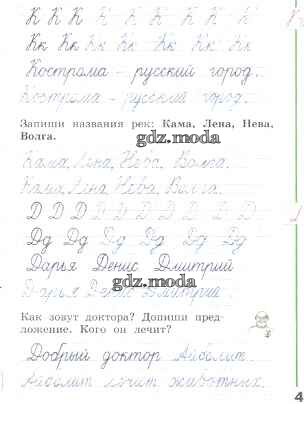 К К К К К К К К
Кк Кк Кк Кк Кк Кк Кк
Кострома - русский город.
Кострома - русский город.
Запиши названия рек: Кама, Лена, Нева,
Волга.
gdz.moda
Кама, Лена, Нева, Волга.
Кама, Лена, Нева, Волга.
Д Д Д Д Д Д Д Д Д Д
Дд Дд Дд Дд Дд Дд Дд
Дарья Денис Дмитрий
gdz.moda
Дарья Денис Дмитрий
Как зовут доктора? Допиши пред-
ложение. Кого он лечит?
Добрый доктор Айболит.
Айболит лечит животных.
4